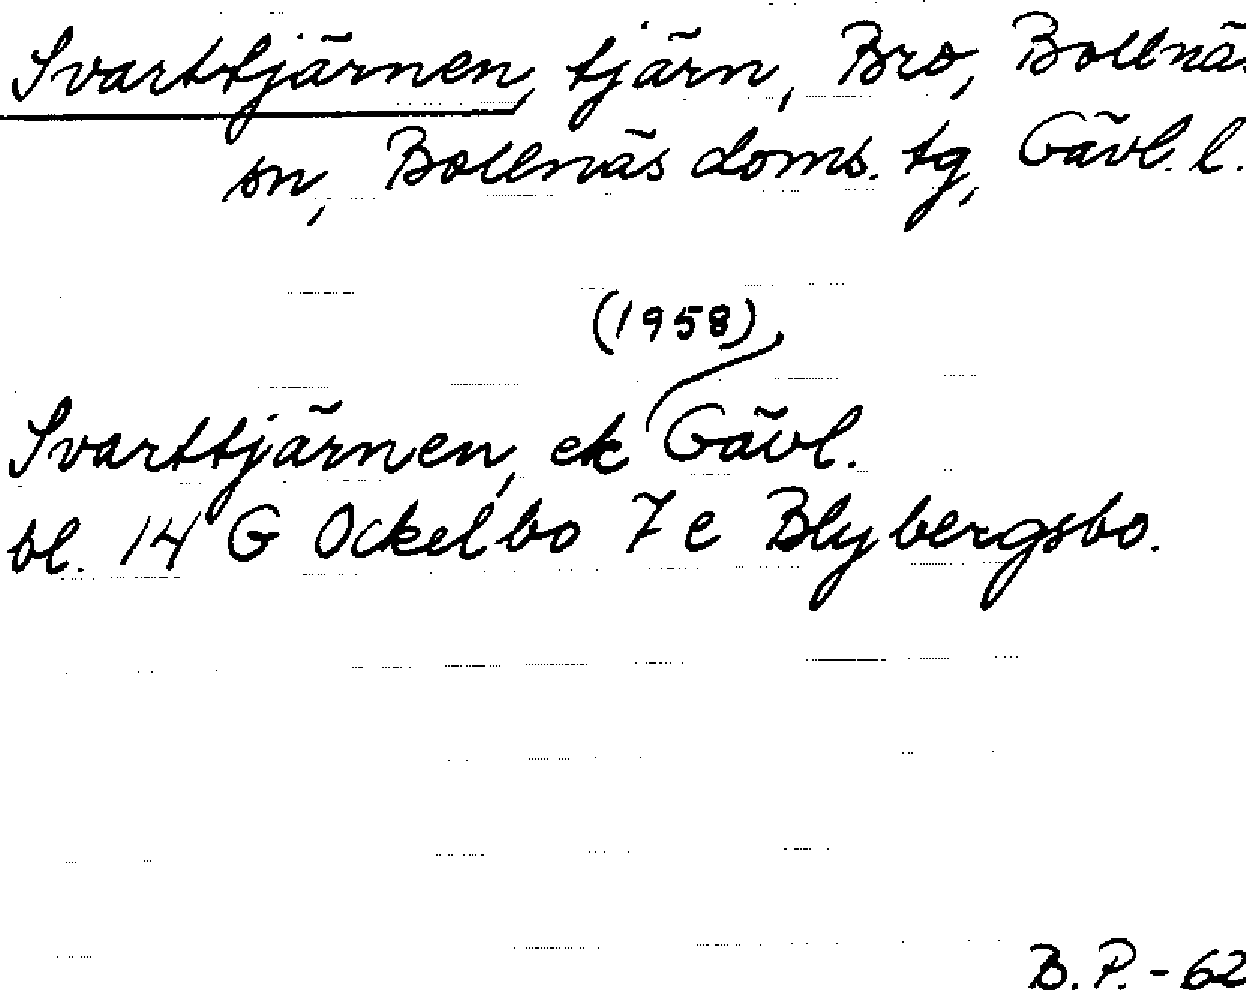 Svarttjärnen, tjärn, Bro, Bollnäs
sn, Bollnäs doms. tg, Gävl. l.
(1958)
Svarttjärnen, ek Gävl.
bl. 14 G Ockelbo 7 e Blybergsbo.
B.P. - 62